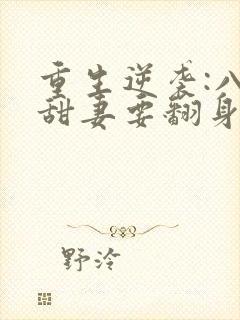 重生逆袭:八
甜妻要翻身
野泠